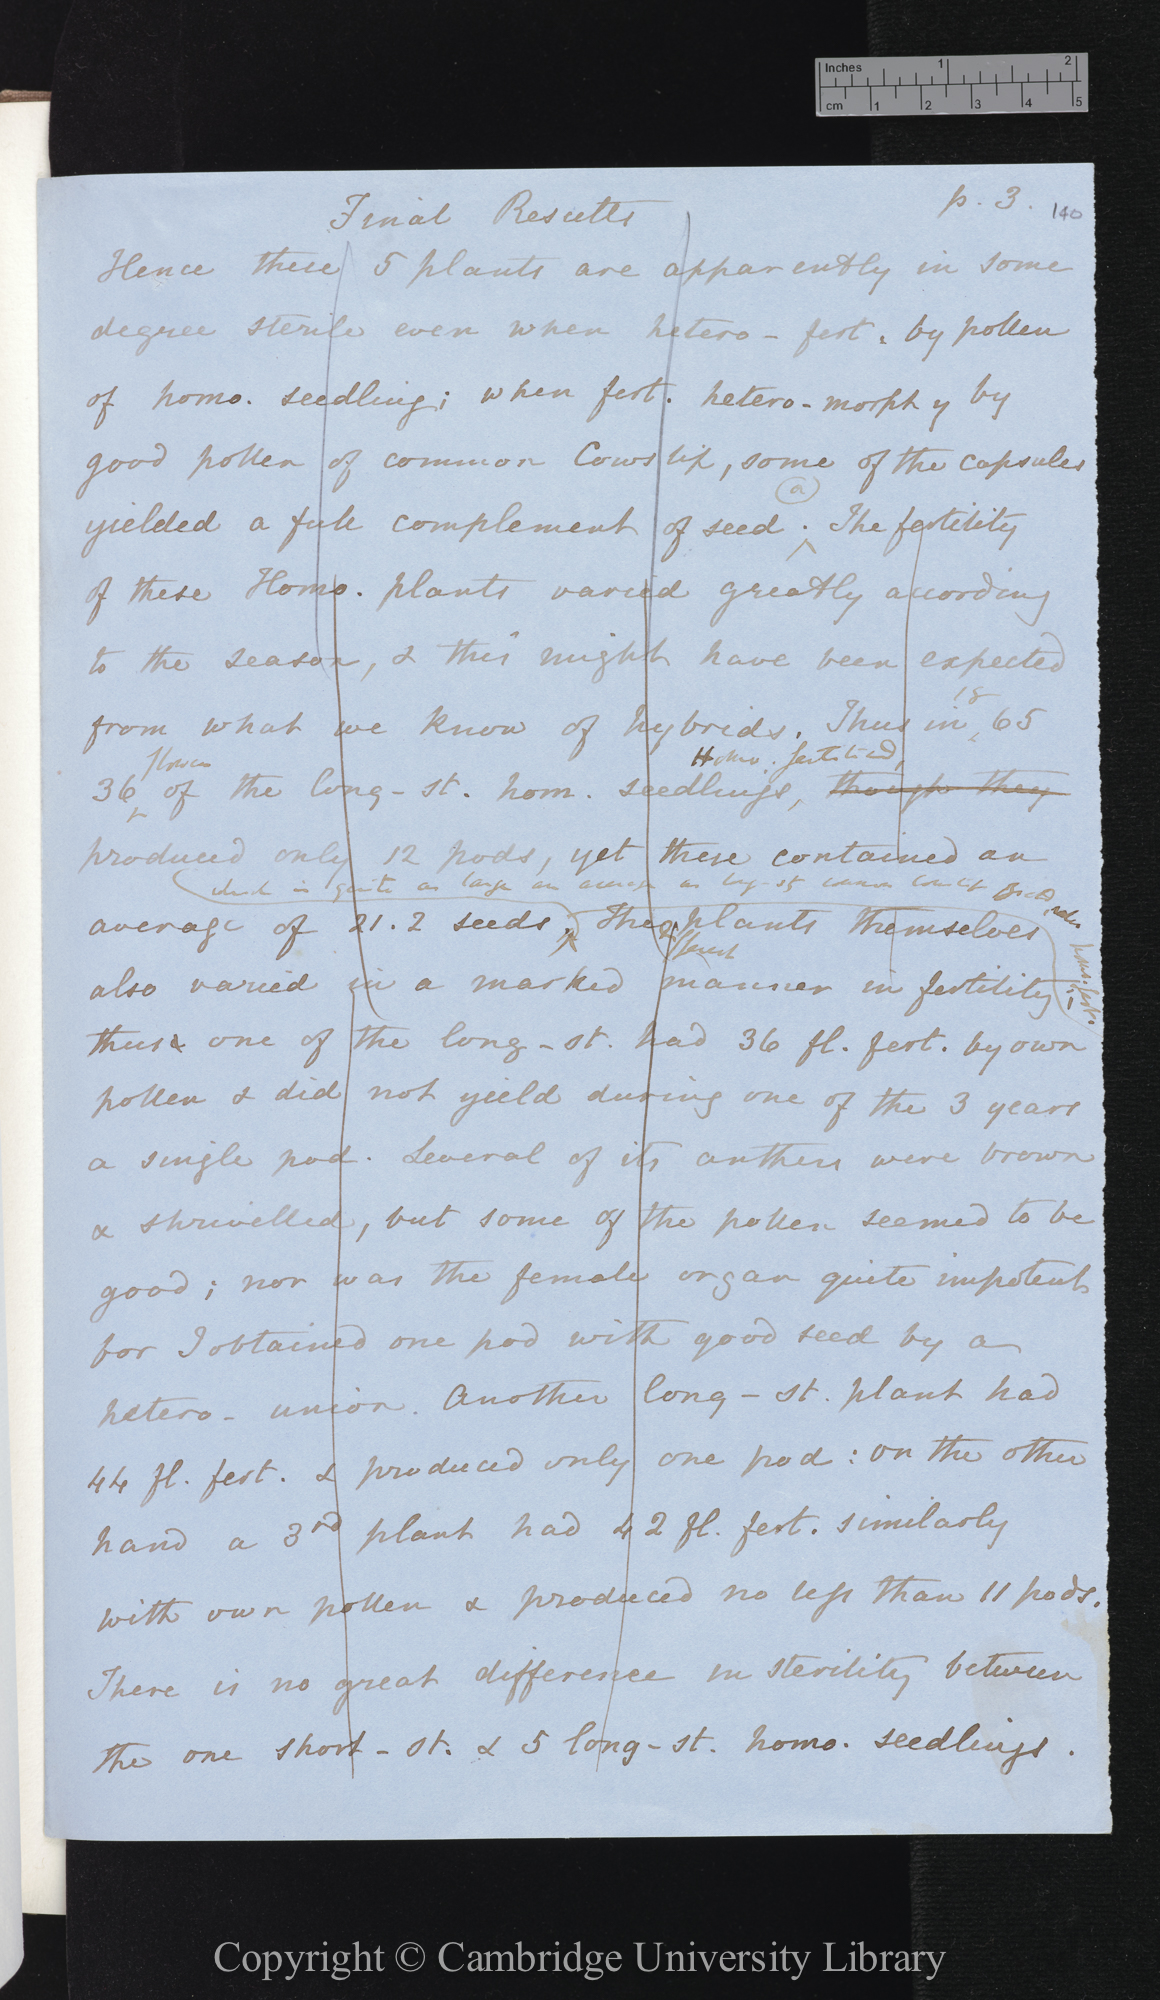 Inches 1 2
cm 1 2 3 4 5
p. 3. 140
Final Results
Hence these 5 plants are apparently in some
degree sterile even when hetero-fert. by pollen
of homo. seedling; when fert. hetero-morph y by
good pollen of common Cowslip, some of the capsules
(a)
yielded a full complement of seed. The fertility
of these Homo. plants varied greatly according
to the season, & this might have been expected
from what we know of hybrids. Thus in 18 65
flowers Homo. fertilised,
36 of the long-st. hom. seedlings, though they
produced only 12 pods, yet these contained an
which is quite as large an average as long-st common Cowslip
average of 21.2 seeds. The plants themselves
also varied in a marked manner in fertility;
thus one of the long-st. had 36 fl. fert. by own
pollen & did not yield during one of the 3 years
a single pod. Several of its anthers were brown
& shrivelled, but some of the pollen seemed to be
good; nor was the female organ quite impotent
for I obtained one pod with good seed by a
hetero-union. Another long-st. plant had
44 fl. fert. & produced only one pod: on the other
hand a 3rd plant had 42 fl. fert. similarly
with own pollen & produced no less than 11 pods.
There is no great difference in sterility between
the one short-st. & 5 long-st. homo. seedlings.
Copyright © Cambridge University Library